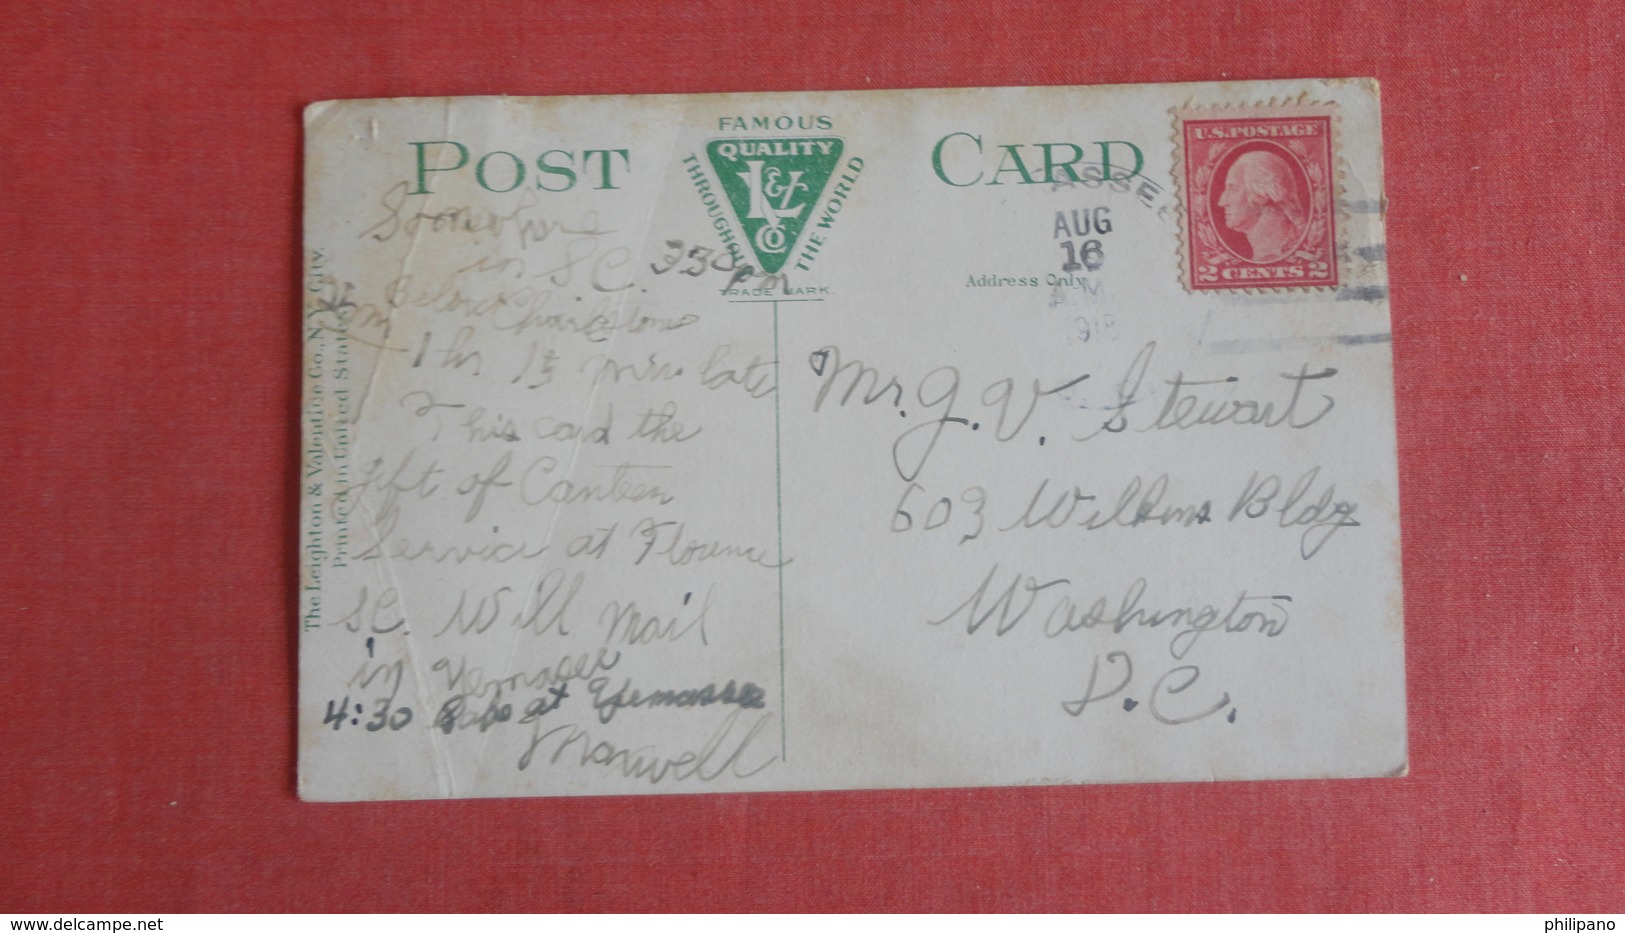 POST CARD
FAMOUS
QUALITY
L&V
Co
THROUGHOUT
THE WORLD
TRADE MARK
Address Only
ASSE
AUG
16
A.M.
1918
U.S. POSTAGE
2 CENTS 2
The Leighton & Valentine Co., N.Y. City.
Printed in United States
Somewhere
in S C. 330 pm
Below Charleston
1 hr 15 min late
This card the
gift of Canteen
Service at Florence
SC. Will Mail
in Yemassee
4:30 at Yemassee
Maxwell
Mr. J. V. Stewart
603 Wilkins Bldg
Washington
D.C.
www.delcampe.net
philipano